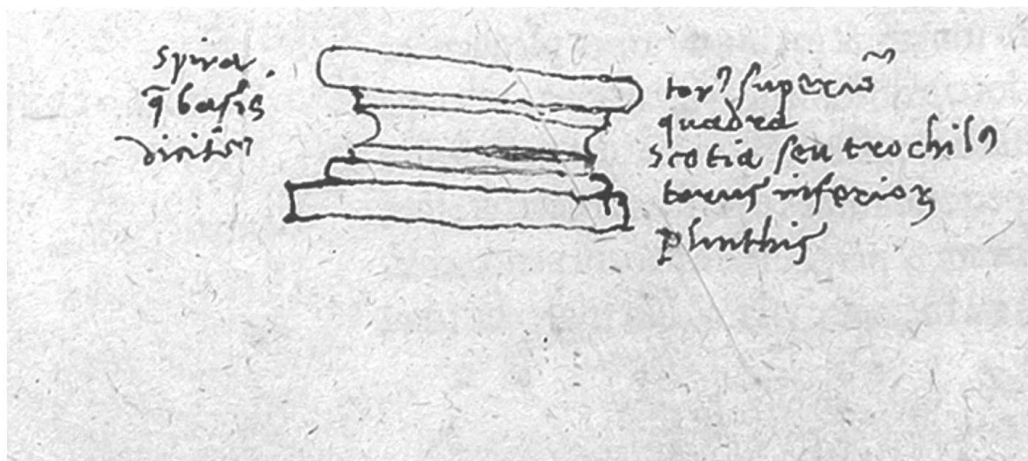 spira
q̄ basis
dicit᷑
torꝰ superiō
quadra
scotia seu trochilꝰ
torus inferior
plinthis